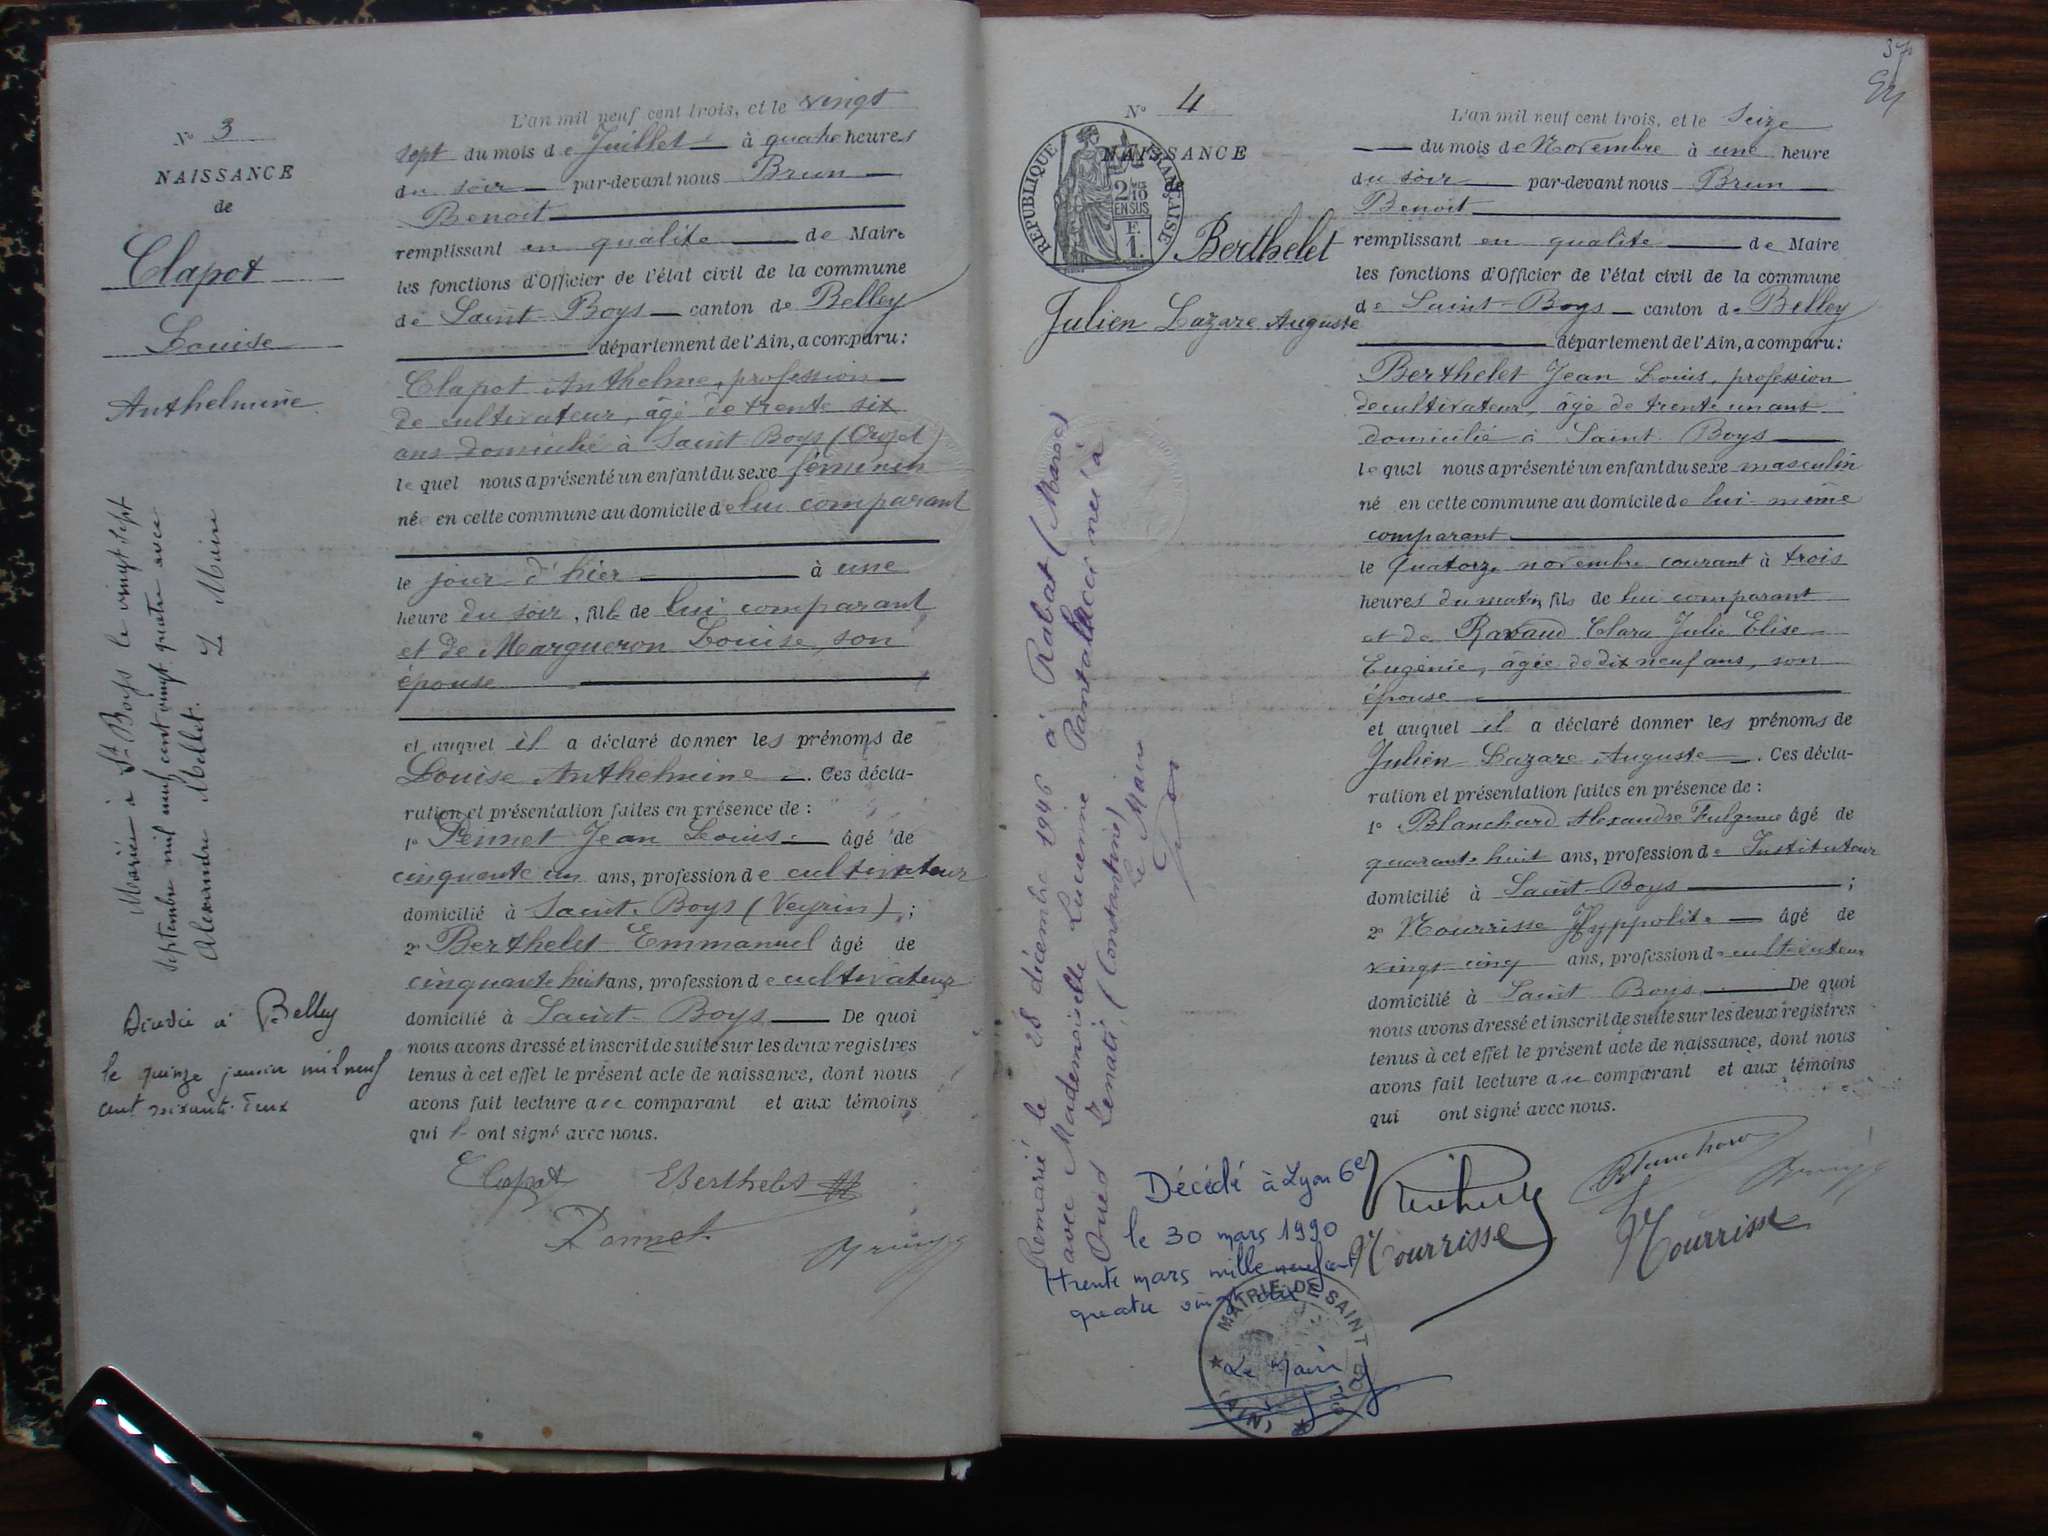 N° 3
NAISSANCE
de
Clapot
Louise
Anthelmine
Mariée à St Boys le vingt sept
septembre mil neuf cent vingt quatre avec
Alexandre Mellet. Le Maire
Décédée à Belley
le quinze janvier mil neuf
cent soixante-deux
L'an mil neuf cent trois, et le vingt
sept du mois de Juillet à quatre heures
du soir par-devant nous Brun
Benoit
remplissant en qualité de Maire
les fonctions d'Officier de l'état civil de la commune
de Saint-Boys canton de Belley
département de l'Ain, a comparu:
Clapot Anthelme, profession
de cultivateur, âgé de trente six
ans domicilié à Saint Boys
le quel nous a présenté un enfant du sexe féminin
né en cette commune au domicile de lui comparant
le jour d'hier à une
heure du soir, fille de lui comparant
et de Margueron Louise, son
épouse
et auquel il a déclaré donner les prénoms de
Louise Anthelmine. Ces décla-
ration et présentation faites en présence de:
1° Pennet Jean Louis âgé de
cinquante un ans, profession de cultivateur
domicilié à Saint-Boys (Veyrin);
2° Berthelet Emmanuel âgé de
cinquante huit ans, profession de cultivateur
domicilié à Saint-Boys De quoi
nous avons dressé et inscrit de suite sur les deux registres
tenus à cet effet le présent acte de naissance, dont nous
avons fait lecture au comparant et aux témoins
qui ont signé avec nous.
Clapot Berthelet
Pennet
37
N° 4
NAISSANCE
de
REPUBLIQUE FRANÇAISE
2/10
EN SUS
F.
1.
Berthelet
Julien Lazare Auguste
Remarié le 28 décembre 1946 à Rabat (Maroc)
avec Mademoiselle Lucienne Pantallacci née à
Oued Zenati, (Constantine)
Le Maire
Décédé à Lyon 6e
le 30 mars 1990
trente mars mille neuf cent
quatre vingt dix
MAIRIE DE SAINT BOYS
(AIN)
Le Maire
L'an mil neuf cent trois, et le Seize
du mois de Novembre à une heure
du soir par-devant nous Brun
Benoit
remplissant en qualité de Maire
les fonctions d'Officier de l'état civil de la commune
de Saint-Boys canton de Belley
département de l'Ain, a comparu:
Berthelet Jean Louis, profession
de cultivateur, âgé de trente un ans
domicilié à Saint Boys
le quel nous a présenté un enfant du sexe masculin
né en cette commune au domicile de lui-même
comparant
le quatorze novembre courant à trois
heures du matin fils de lui comparant
et de Ravaud Clara Julie Elise
Eugénie, âgée de dix neuf ans, son
épouse
et auquel il a déclaré donner les prénoms de
Julien Lazare Auguste. Ces décla-
ration et présentation faites en présence de:
1° Blanchard Alexandre Fulgence âgé de
quarante huit ans, profession de Instituteur
domicilié à Saint-Boys;
2° Nourrisse Hyppolite âgé de
vingt cinq ans, profession de cultivateur
domicilié à Saint Boys De quoi
nous avons dressé et inscrit de suite sur les deux registres
tenus à cet effet le présent acte de naissance, dont nous
avons fait lecture au comparant et aux témoins
qui ont signé avec nous.
Blanchard
Nourrisse Nourrisse